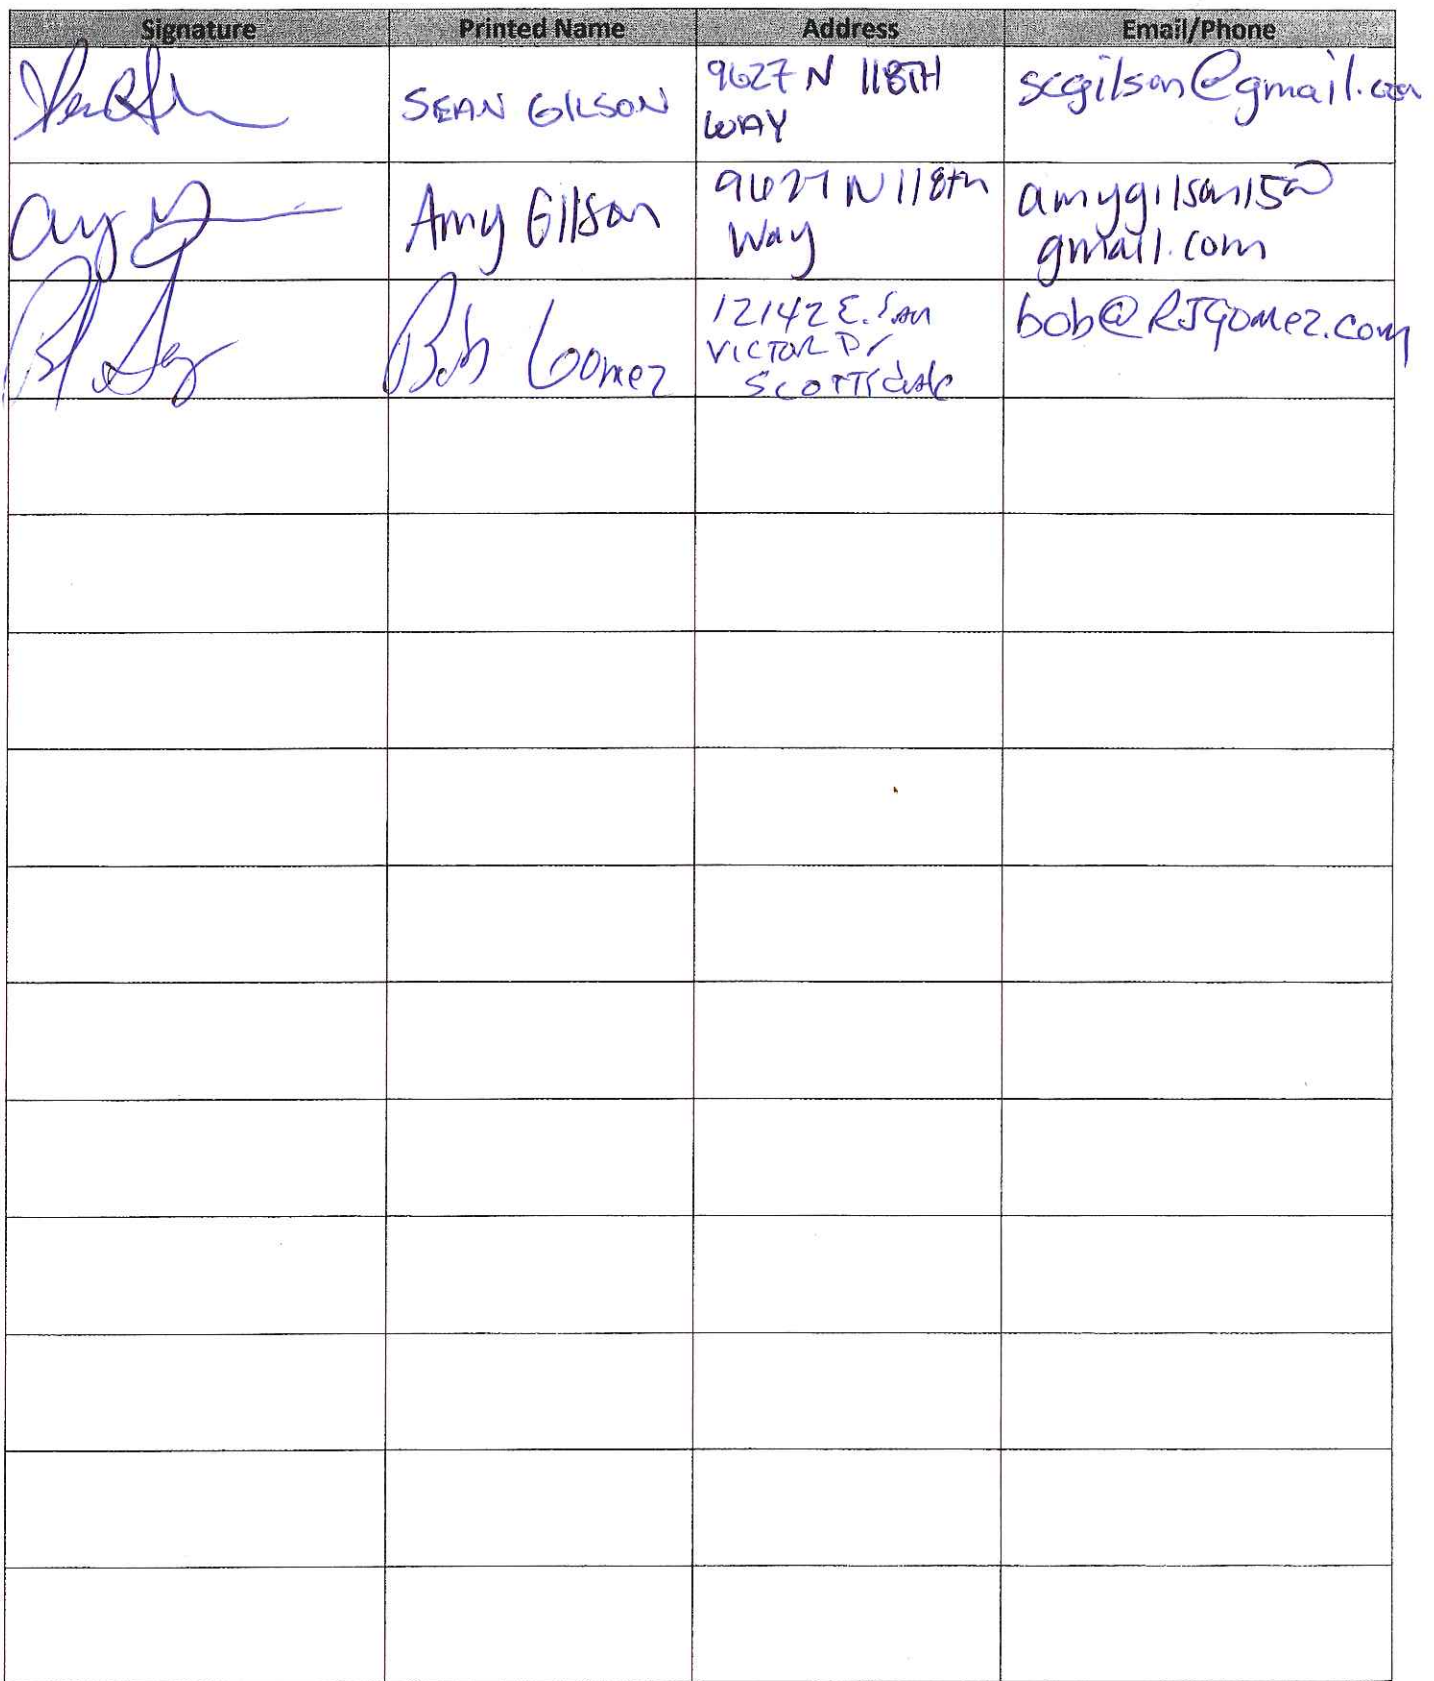 Signature Printed Name Address Email/Phone
SEAN GILSON
9627 N 118TH
WAY
scgilson@gmail.com
Amy Gilson
9627 N 118th
Way
amygilson15@
gmail.com
Bob Gomez
12142 E. San
VICTOR Dr
SCOTTSdale
bob@RJGomez.com